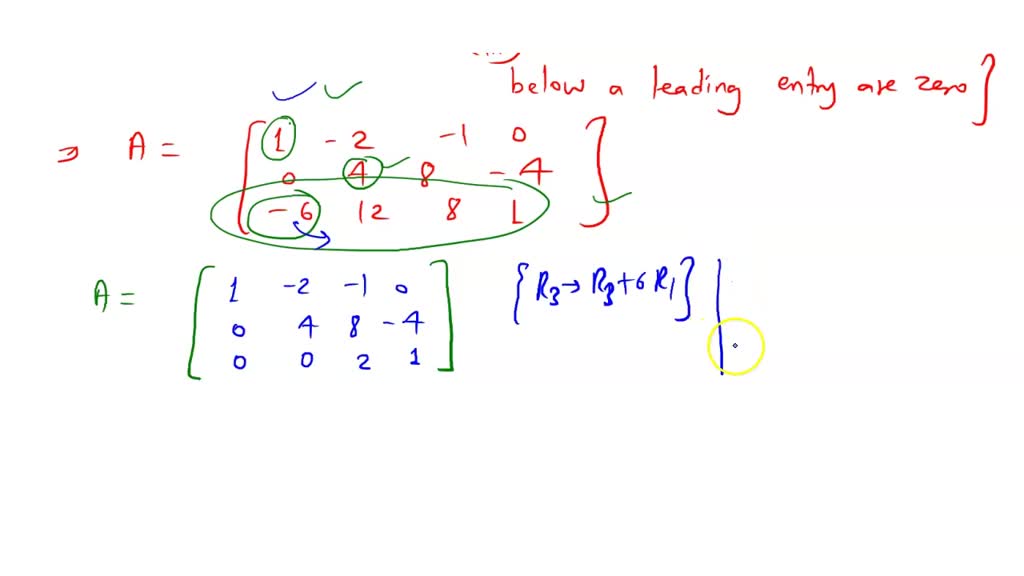 below a leading entry are zero]
⇒ A = [ 1 -2 -1 0
0 4 8 -4
-6 12 8 1 ]
A = [ 1 -2 -1 0
0 4 8 -4
0 0 2 1 ] {R3→R3+6R1} |